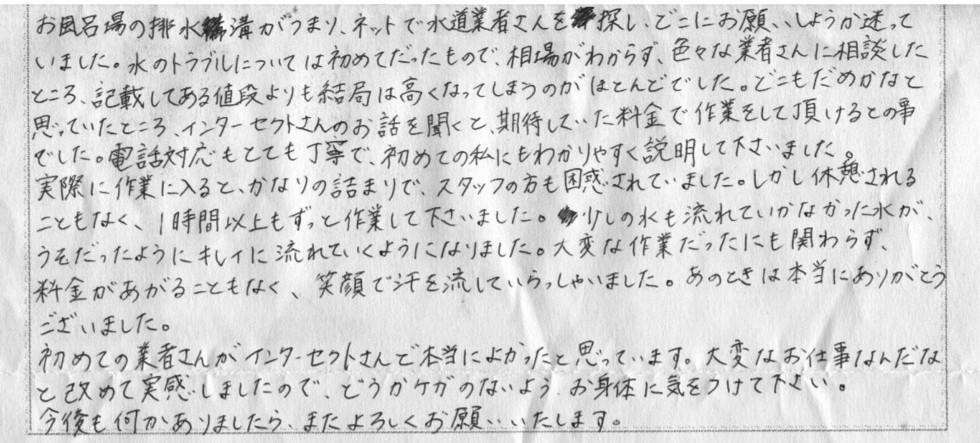 お風呂場の排水溝がつまり、ネットで水道業者さんを探し、どこにお願いしようか迷って
いました。水のトラブルについては初めてだったもので、相場がわからず、色々な業者さんに相談した
ところ、記載してある値段よりも結局は高くなってしまうのがほとんどでした。どこもだめかなと
思っていたところ、インターセクトさんのお話を聞くと、期待していた料金で作業をして頂けるとの事
でした。電話対応もとても丁寧で、初めての私にもわかりやすく説明して下さいました。
実際に作業に入ると、かなりの詰まりで、スタッフの方も困惑されていました。しかし休憩される
こともなく、1時間以上もずっと作業して下さいました。少しの水も流れていかなかった水が、
うそだったようにキレイに流れていくようになりました。大変な作業だったにも関わらず、
料金があがることもなく、笑顔で汗を流していらっしゃいました。あのときは本当にありがとう
ございました。
初めての業者さんがインターセクトさんで本当によかったと思っています。大変なお仕事なんだな
と改めて実感しましたので、どうかケガのないよう お身体に気をつけて下さい。
今後も何かありましたら、またよろしくお願いいたします。